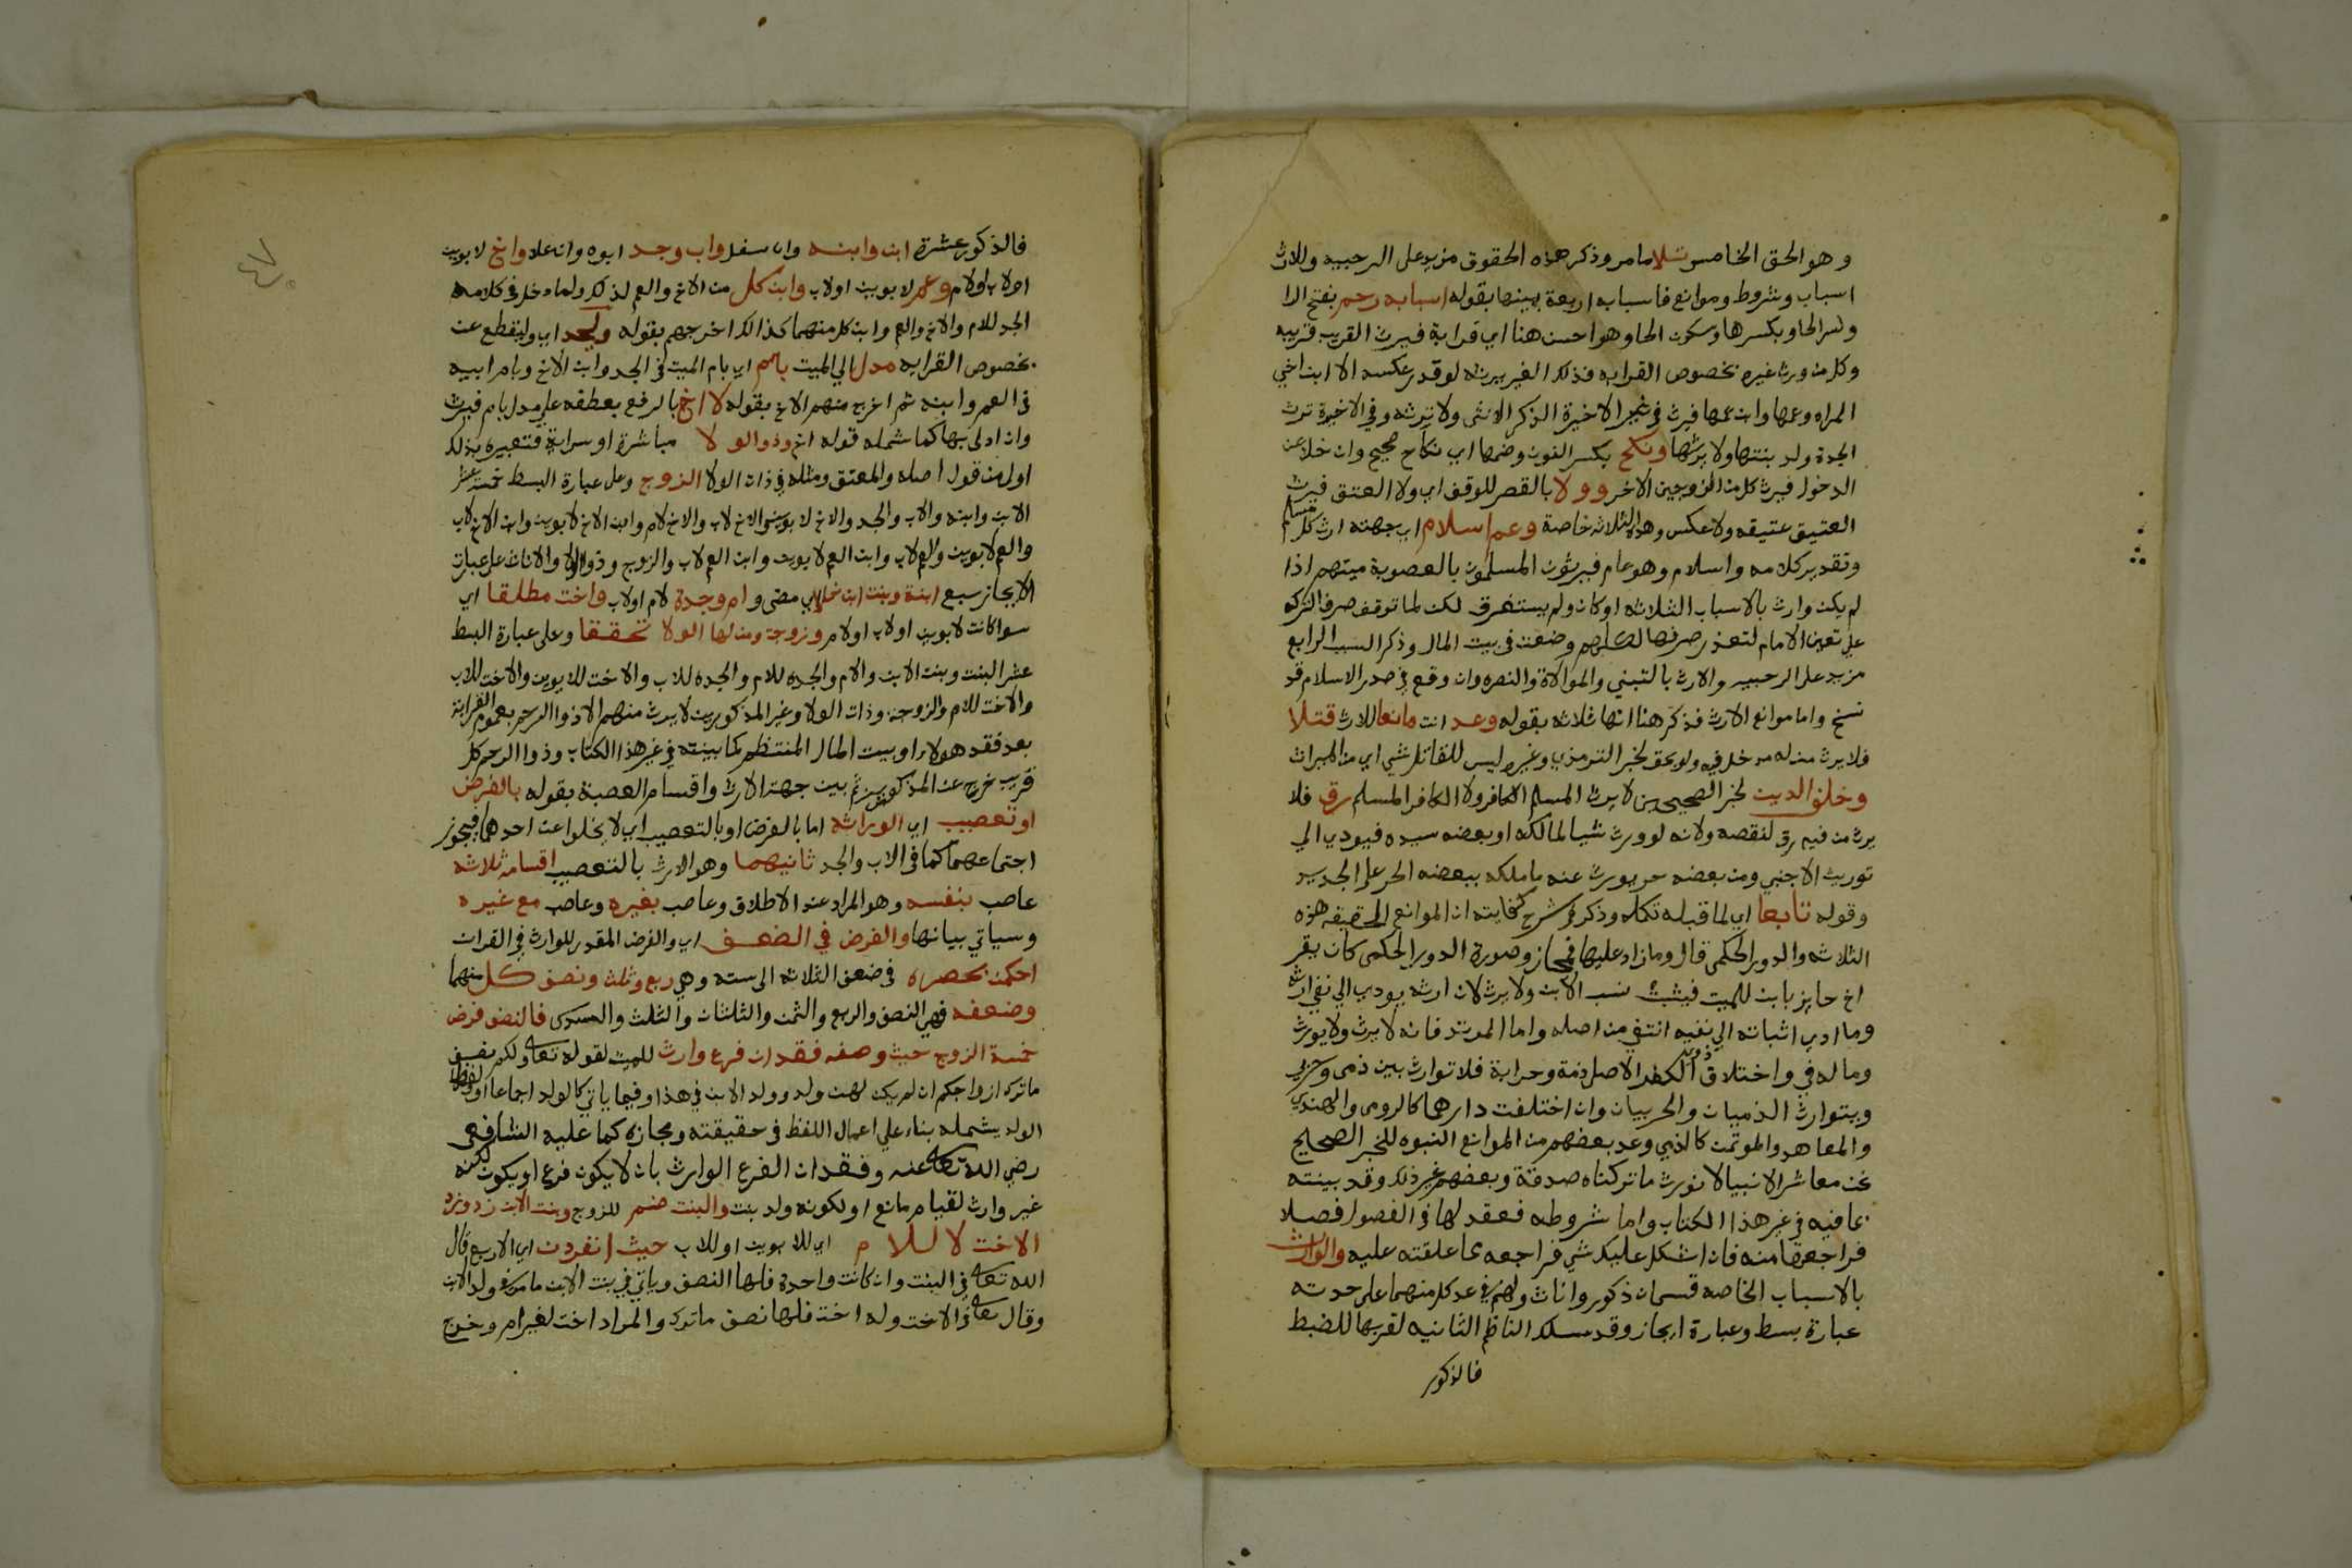 وهو الحق الخامس تلا ما مر وذكر هذه الحقوق مزيد على الرحبيه وللارث
اسباب وشروط وموانع فاسبابه اربعة بينها بقوله اسبابه رحم بفتح الرا
وكسر الحا وبكسرها وسكون الحا وهو احسن هنا اي قرابة فيرث القريب قريبه
وكل من ورث غيره بخصوص القرابه فذلك الغير يرثه لو قدر عكسه الا ابن اخي
المراه وعمها وابن عمها فيرث في غير الاخيرة الذكر الانثى ولا ترثه وفي الاخيرة ترث
الجدة ولد بنتها ولا يرثها ونكح بكسر النون وضمها اي نكاح صحيح وان خلا عن
الدخول فيرث كل من الزوجين الاخر وولا بالقصر للوقف اي ولا العتق فيرث
العتيق عتيقه ولا عكس وهذه الثلاثه خاصة وعم اسلام اي جهته ارث كل مسلم
وتقدير كلامه واسلام وهو عام فيرثون المسلمون بالعصوبة ميتهم اذا
لم يكن وارث بالاسباب الثلاثه او كان ولم يستغرق لكن لما توقف صرف التركه
على تعين الامام لتعذر صرفها لكلهم وضعت في بيت المال وذكر السبب الرابع
مزيد على الرحبيه والارث بالتبني والموالاة والنصره وان وقع في صدر الاسلام قد
نسخ واما موانع الارث فذكر هنا انها ثلاثه بقوله وعد انت مانعا للارث قتلا
فلا يرث من له مدخل فيه ولو بحق لخبر الترمذي وغيره ليس للقاتل شي اي من الميراث
وخلف الدين لخبر الصحيحين لا يرث المسلم الكافر ولا الكافر المسلم رق فلا
يرث من فيه رق لنقصه ولانه لو ورث شيا لمالكه او بعضه سيده فيودي الي
توريث الاجنبي ومن بعضه حر يورث عنه ما ملكه ببعضه الحر على الجديد
وقوله تابعا اي لما قبله تكمله وذكر في شرح كفايته ان الموانع الحقيقيه هذه
الثلاثه والدور الحكمي قال وما زاد عليها فمجاز وصورة الدور الحكمي كان يقر
اخ حايز بابن للميت فيثبت نسب الابن ولا يرث لان ارثه يودي الي نفي ارثه
وما ادي اثباته الي نفيه انتفي من اصله واما المرتد فانه لا يرث ولا يورث
وماله في واختلاف ذوي الكفر الاصل ذمة وحرابة فلا توارث بين ذمى وحربي
ويتوارث الذميان والحربيان وان اختلفت دارهما كالرومي والهندي
والمعاهد والموتمن كالذمي وعد بعضهم من الموانع النبوه للخبر الصحيح
نحن معاشر الانبيا لا نورث ما تركناه صدقة وبعضهم غير ذلك وقد بينته
بما فيه في غير هذا الكتاب واما شروطه فعقد لها في الفصول فصلا
فراجعها منه فان اشكل عليك شي فراجعه بما علقته عليه والوارث
بالاسباب الخاصه قسمان ذكور واناث ولهم في عد كل منهما على حدته
عبارة بسط وعبارة ايجاز وقد سلك الناظم الثانيه لقربها للضبط
فالذكور
٤٧
فالذكور عشرة ابن وابنه وان سفل واب وجد ابوه وان علا واخ لابوين
او لاب او لام وعم لابوين او لاب وابن كل من الاخ والعم لذلك ولما دخل في كلامه
الجد للام والاخ والعم وابن كل منهما كذالك اخرجهم بقوله وليحد اي ولينقطع عن
بخصوص القرابه مدل الي الميت بام اي بام الميت في الجد وابن الاخ وبام ابيه
في العم وابنه ثم اخرج منهم الاخ بقوله لا اخ بالرفع بعطفه على مدل بام فيرث
وان ادلى بها كما شمله قوله اخ وذو الولا مباشرة او سراية فتعبيره بذلك
اولى من قول اصله والمعتق ومثله في ذات الولا الزوج وعلى عبارة البسط خمسة عشر
الابن وابنه والاب والجد والاخ لابوين والاخ لاب والاخ لام وابن الاخ لابوين وابن الاخ لاب
والعم لابوين والعم لاب وابن العم لابوين وابن العم لاب والزوج وذو الولا والاناث على عبارة
الايجاز سبع ابنة وبنت ابن خلا اي مضى وام وجدة لام او لاب واخت مطلقا اي
سوا كانت لابوين او لاب او لام وزوجة ومن لها الولا تحققا وعلى عبارة البسط
عشر البنت وبنت الابن والام والجده للام والجده للاب والاخت للابوين والاخت للاب
والاخت للام والزوجة وذات الولا وغير المذكورين لا يرث منهم الا ذوا الرحم بعموم القرابة
بعد فقد هولاء او بيت المال المنتظم كما بينته في غير هذا الكتاب وذوا الرحم كل
قريب خرج عن المذكورين ثم بين جهة الارث واقسام العصبة بقوله بالفرض
او تعصيب اي الوراثه اما بالفرض او بالتعصيب اي لا يخلوا عن احدهما فيجوز
اجتماعهما كما في الاب والجد ثانيهما وهو الارث بالتعصيب اقسامه ثلاثه
عاصب بنفسه وهو المراد عند الاطلاق وعاصب بغيره وعاصب مع غيره
وسياتي بيانها والفرض في الضعف اي والفرض المقدر للوارث في القران
احكمن بحصره في ضعف الثلاثه الى سته وهي ربع وثلث ونصف كل منهما
وضعفه فهي النصف والربع والثمن والثلثان والثلث والسدس فالنصف فرض
خمسة الزوج حيث وصفه فقدان فرع وارث للميت لقوله تعالى ولكم نصف
ما ترك ازواجكم ان لم يكن لهن ولد وولد الابن في هذا وفيما ياتي كالولد اجماعا او لفظ
الولد يشمله بناء علي اعمال اللفظ في حقيقته ومجازه كما عليه الشافعي
رضي الله تعالى عنه وفقدان الفرع الوارث بان لا يكون فرع او يكون لكنه
غير وارث لقيام مانع او لكونه ولد بنت والبنت ضم للزوج وبنت الابن زد وزد
الاخت لا للام اي للابوين او للاب حيث انفردت اي الاربع قال
الله تعالى في البنت وان كانت واحدة فلها النصف وياتي في بنت الابن ما مر في ولد الابن
وقال تعالى في الاخت وله اخت فلها نصف ما ترك والمراد اخت لغير ام وخرج